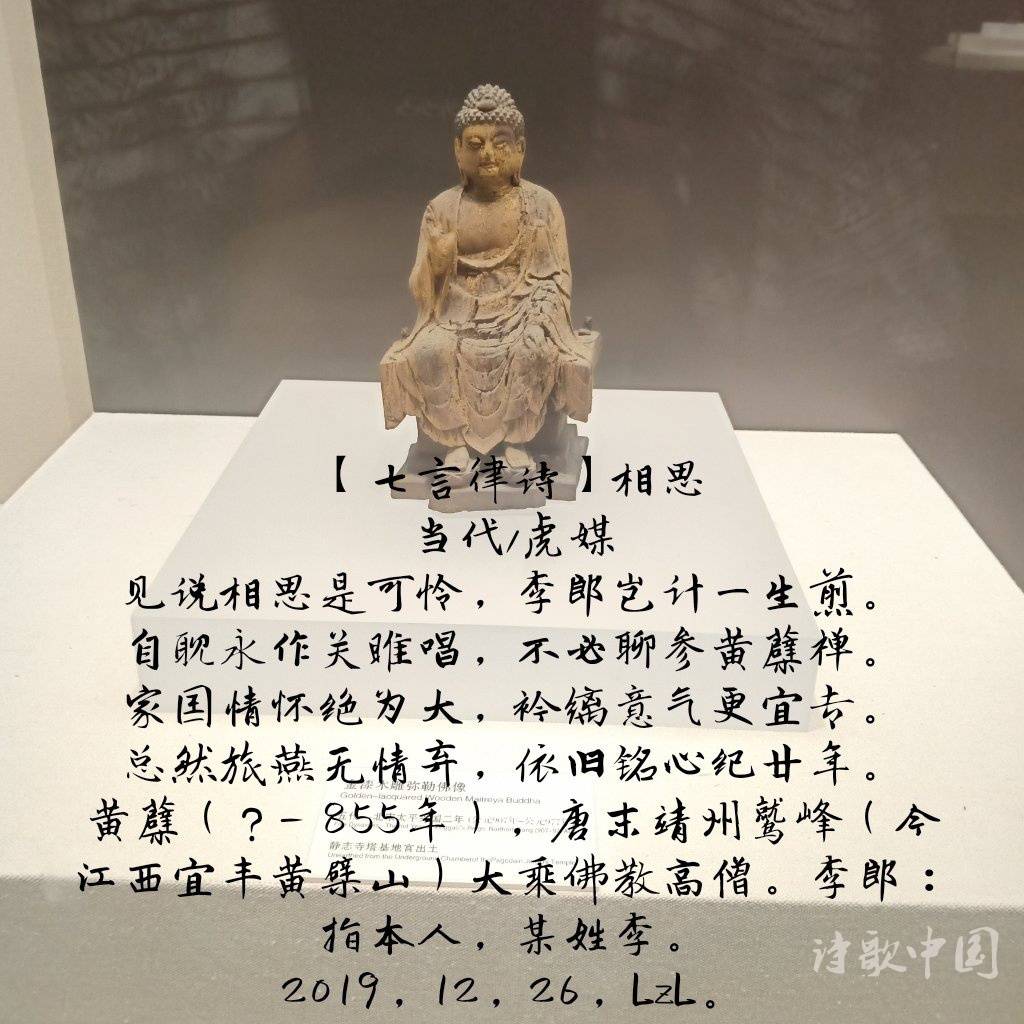 【七言律诗】相思
当代/虎媒
见说相思是可怜，李郎岂计一生煎。
自觍永作关雎唱，不必聊参黄蘗禅。
家国情怀绝为大，衿缡意气更宜专。
总然旅燕无情弃，依旧铭心纪廿年。
金漆木雕弥勒佛像
Golden-lacquared Wooden Maitreya Buddha
黄蘗（？－855年），唐末靖州鹫峰（今
静志寺塔基地宫出土
江西宜丰黄檗山）大乘佛教高僧。李郎：
指本人，某姓李。
2019，12，26，LzL。
诗歌中国